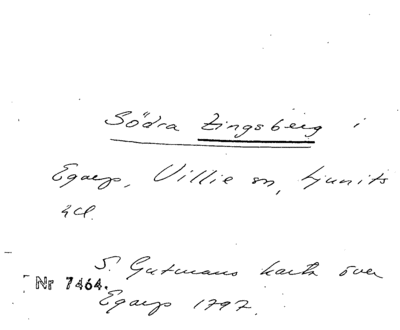 Södra Lingsberg i
Egarp, Villie sn, Ljunits
hd.
S. Gutmans karta över
Nr 7464.
Egarp 1797.